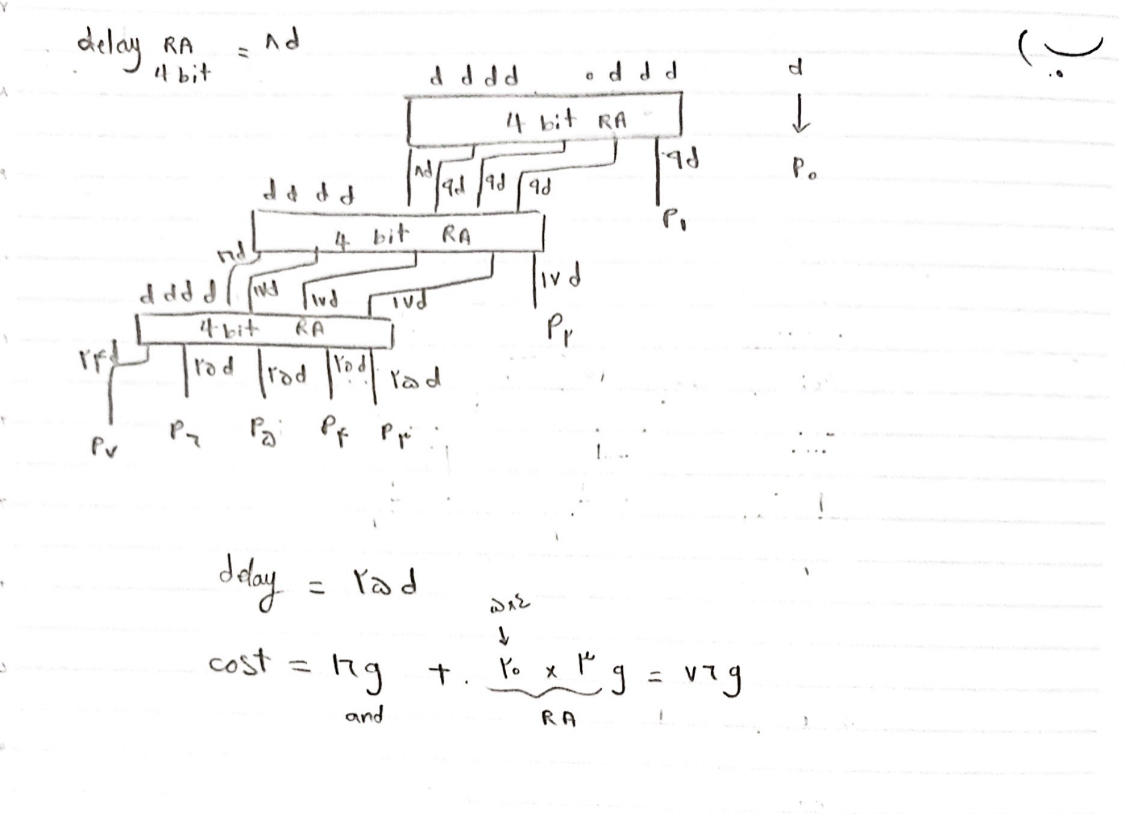 ب)
delay RA 4 bit = ۸d
d d d d ۰ d d d d
4 bit RA ↓
۸d ۹d ۹d ۹d ۹d P۰
d d d d P۱
4 bit RA
۱۷d
d d d d ۱۷d ۱۷d ۱۷d P۲
4 bit RA
۲۴d ۲۵d ۲۵d ۲۵d ۲۵d
P۷ P۶ P۵ P۴ P۳
delay = ۲۵d
۵×۴
↓
cost = ۱۶g + ۲۰ × ۳g = ۷۶g
and RA